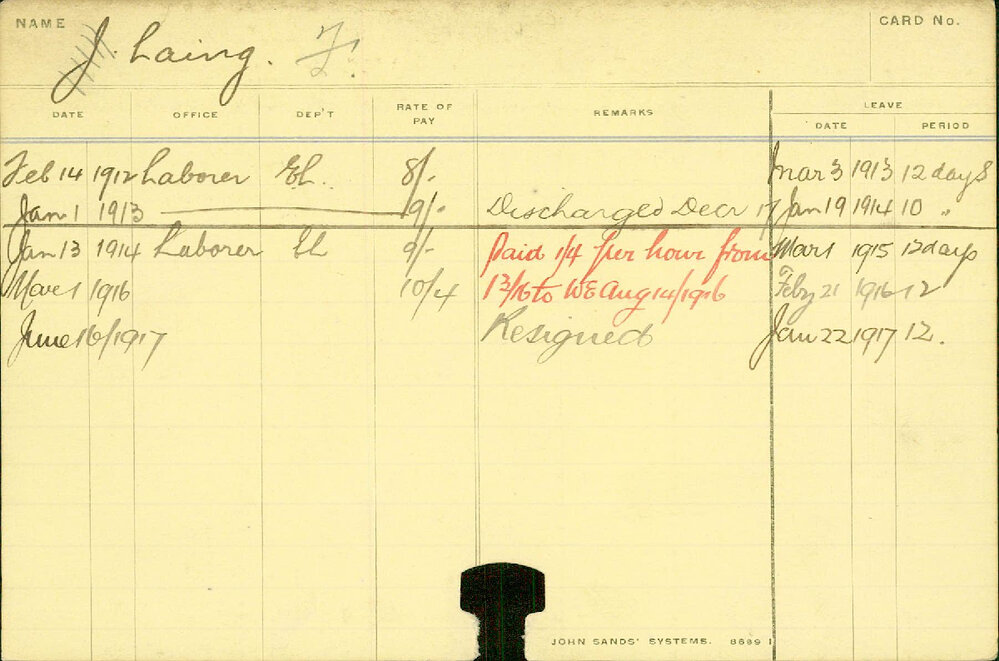 NAME J. Laing. F. CARD No.
DATE OFFICE DEP'T RATE OF PAY REMARKS LEAVE
DATE PERIOD
Feb 14 1912 Laborer El. 8/- Mar 3 1913 12 days
Jan 1 1913 9/- Discharged Decr 17 Jan 19 1914 10 "
Jan 13 1914 Laborer El 9/- Paid 1/4 per hour from Mar 1 1915 12 days
1916 10/4 to WE Aug 14/1916 Feby 21 1916 12
June 16/1917 Resigned Jan 22 1917 12.
JOHN SANDS' SYSTEMS.